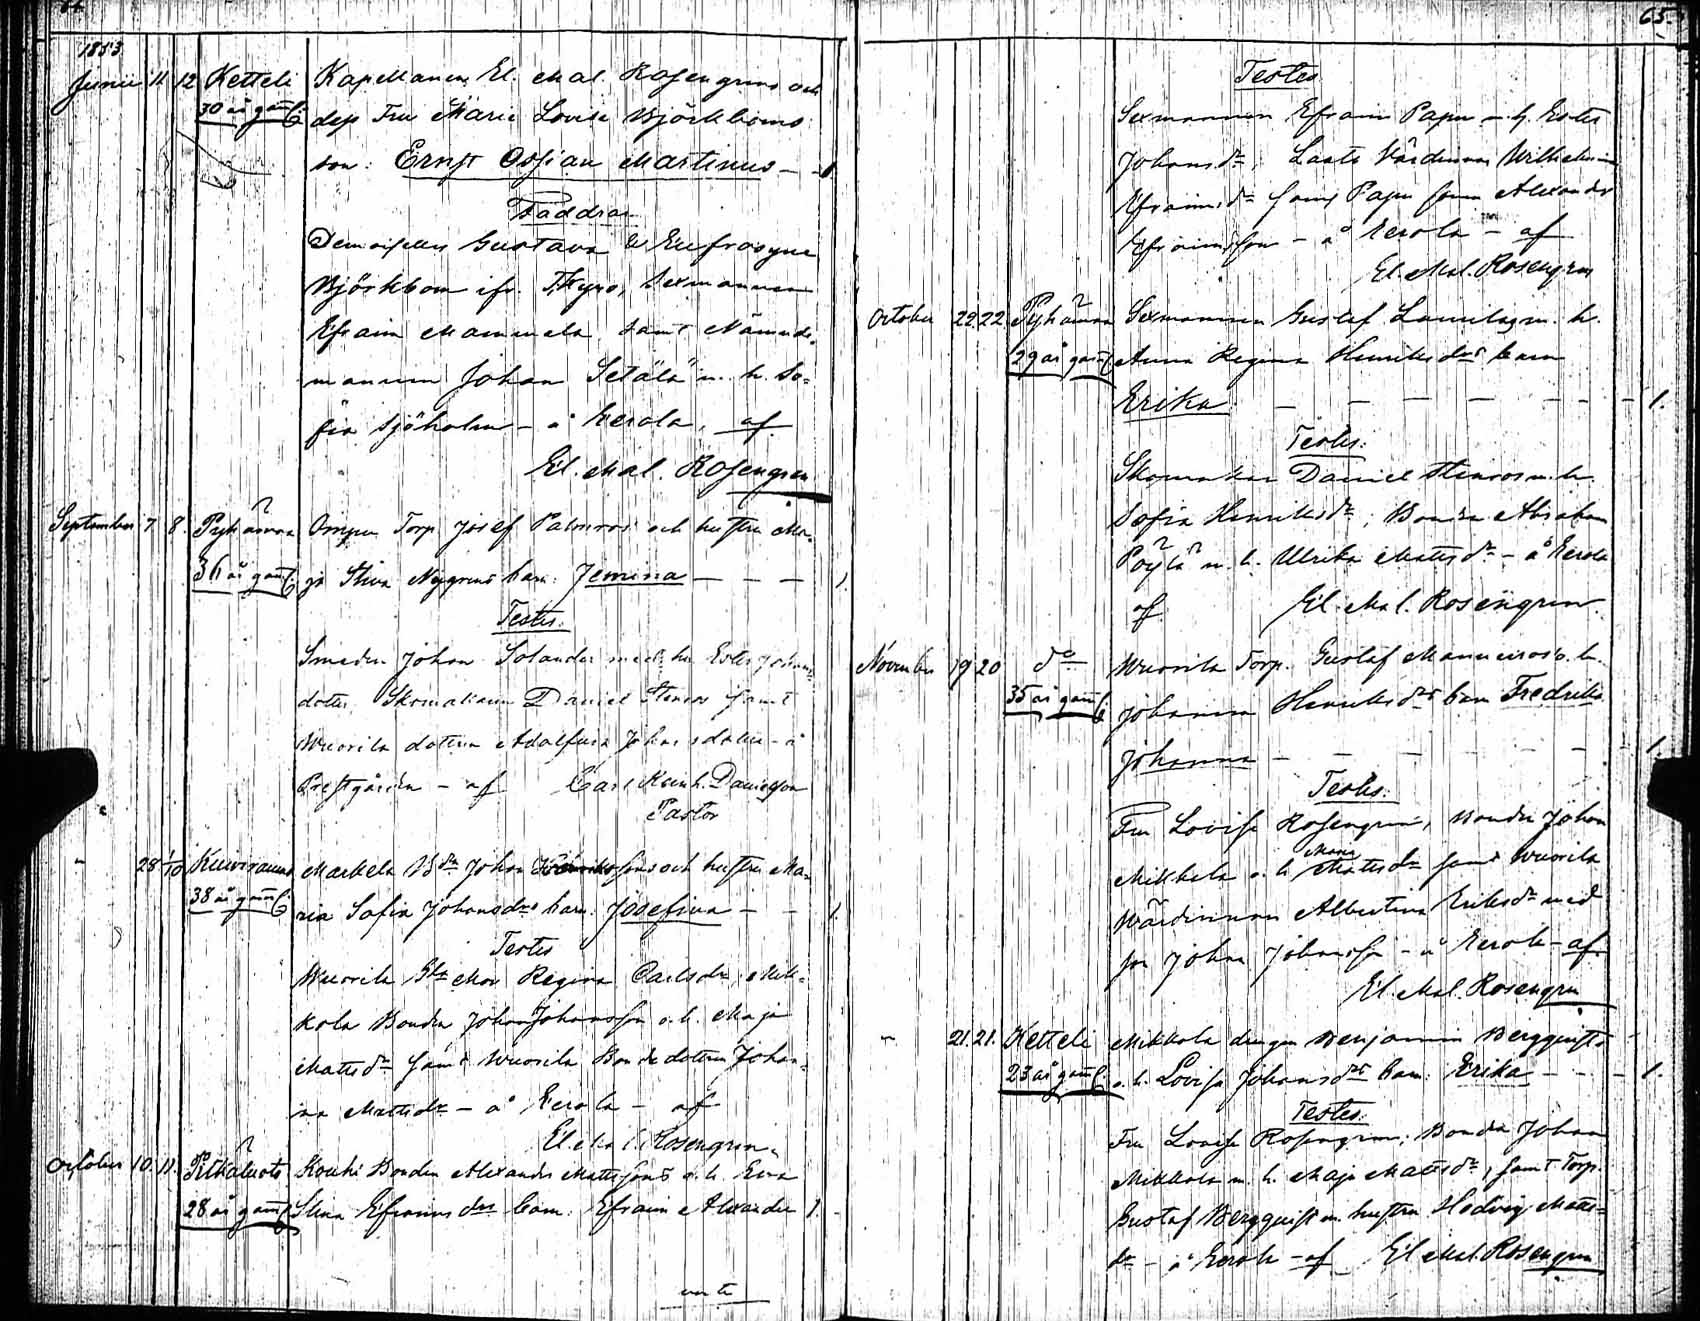 1853.
Junii 11 12 Ketteli Kapellanen El. Mal. Rosengrens och
30 år gam̃l. dess Fru Maria Lovisa Björkboms
son: Ernst Ossian Martinus — 1.
Faddrar
Demoiseller Gustava & Eufrosyne
Björkbom ifr. Tyrvis, Sexmannen
Efraim Mammela samt Nämnde-
mannen Johan Setälä m. h. So-
fia Sjöholm — å Kerola, af
El. Mal. Rosengren
September 7 8. Pyhämaa Torp. Josef Palmros och hustru Ma-
36 år gam̃l. ja Stina Nygrens barn: Jemina — — — 1.
Testes:
Smeden Johan Solander med hu Ester Johans
dotter, Skomakaren Daniel Stenros samt
Wuorila dottren Adolfina Johansdotter — å
Prestgården — af Carl Danielson
Pastor
28 1/10 Kuivrauma Markela Bdn Johan sons och hustru Ma-
38 år gam̃l. ria Sofia Johansdrs barn: Josefina — — 1.
Testes
Wuorila Regina Carlsdr, Mik-
kola Bonden Johan Johansson o. h. Maja
Mattsdr samt Wuorila Bondedottren Johan-
na Mattsdr — å Kerola — af
El. Mal. Rosengren.
October 10. 11. Pitkäluoto Kouhi Bonden Alexander Mattssons o. h. Eva
28 år gam̃l. Stina Efraimsdrs barn: Efraim Alexander 1.
verte
65.
Testes
Sexmannen Efraim Papu m. h. Ester
Johansdr, Laats Värdinnan Wilhelmina
Efraimsdr samt Papu sonen Alexander
Efraimsson — å Kerola — af
El. Mal. Rosengren
October 22 22 Pyhämaa Sexmannen Gustaf Laurila m. h.
29 år gam̃l. Anna Regina Henriksdrs barn
Erika — — — — — — — 1.
Testes:
Skomakar Daniel Stenros m. h.
Sofia Henriksdr; Bonden Abraham
Pöytä m. h. Ulrika Mattsdr — å Kerola
af El. Mal. Rosengren.
November 19 20 do Wuorila Torp. Gustaf o. h.
35 år gam̃l. Johanna Henriksdrs barn Fredrika
Johanna — — — — — 1.
Testes:
Fru Lovisa Rosengren, Bonden Johan
Maria
Mikkola o. h. Mattsdr samt Wuorila
Wärdinnan Albertina Eriksdr med
son Johan Johansson — å Kerola — af
El. Mal. Rosengren
21. 21. Ketteli Mikkola drengen Benjamin Bergquists
23 år gam̃l. o. h. Lovisa Johansdrs barn: Erika — — — 1.
Testes:
Fru Lovisa Rosengren, Bonden Johan
Mikkola m. h. Maja Mattsdr, samt Torp.
Gustaf Bergquist m. hustru Hedvig Matts-
dr — å Kerola — af El. Mal. Rosengren